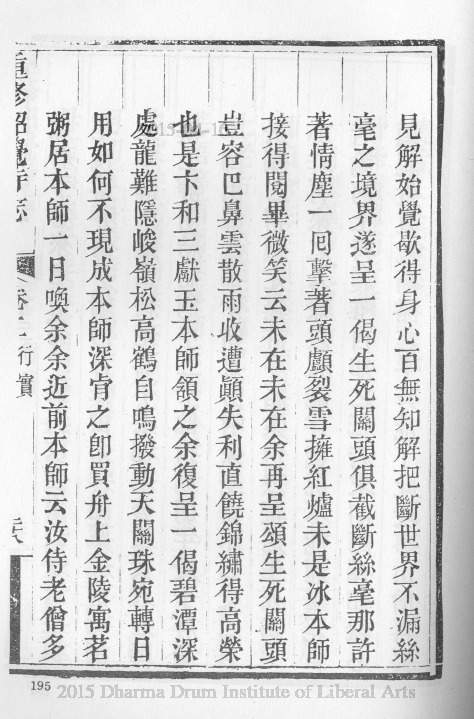 見解始覺歇得身心百無知解把斷世界不漏絲
毫之境界遂呈一偈生死關頭俱截斷絲毫那許
著情塵一回擊著頭顱裂雪擁紅爐未是冰本師
接得閱畢微笑云未在未在余再呈頌生死關頭
豈容巴鼻雲散雨收遭顚失利直饒錦繡得高榮
也是卞和三獻玉本師頷之余復呈一偈碧潭深
處龍難隱峻嶺松高鶴自鳴撥動天關珠宛轉日
用如何不現成本師深肯之卽買舟上金陵寓茗
粥居本師一日喚余余近前本師云汝侍老僧多
重修昭覺寺志
卷二 行實
195
2015 Dharma Drum Institute of Liberal Arts